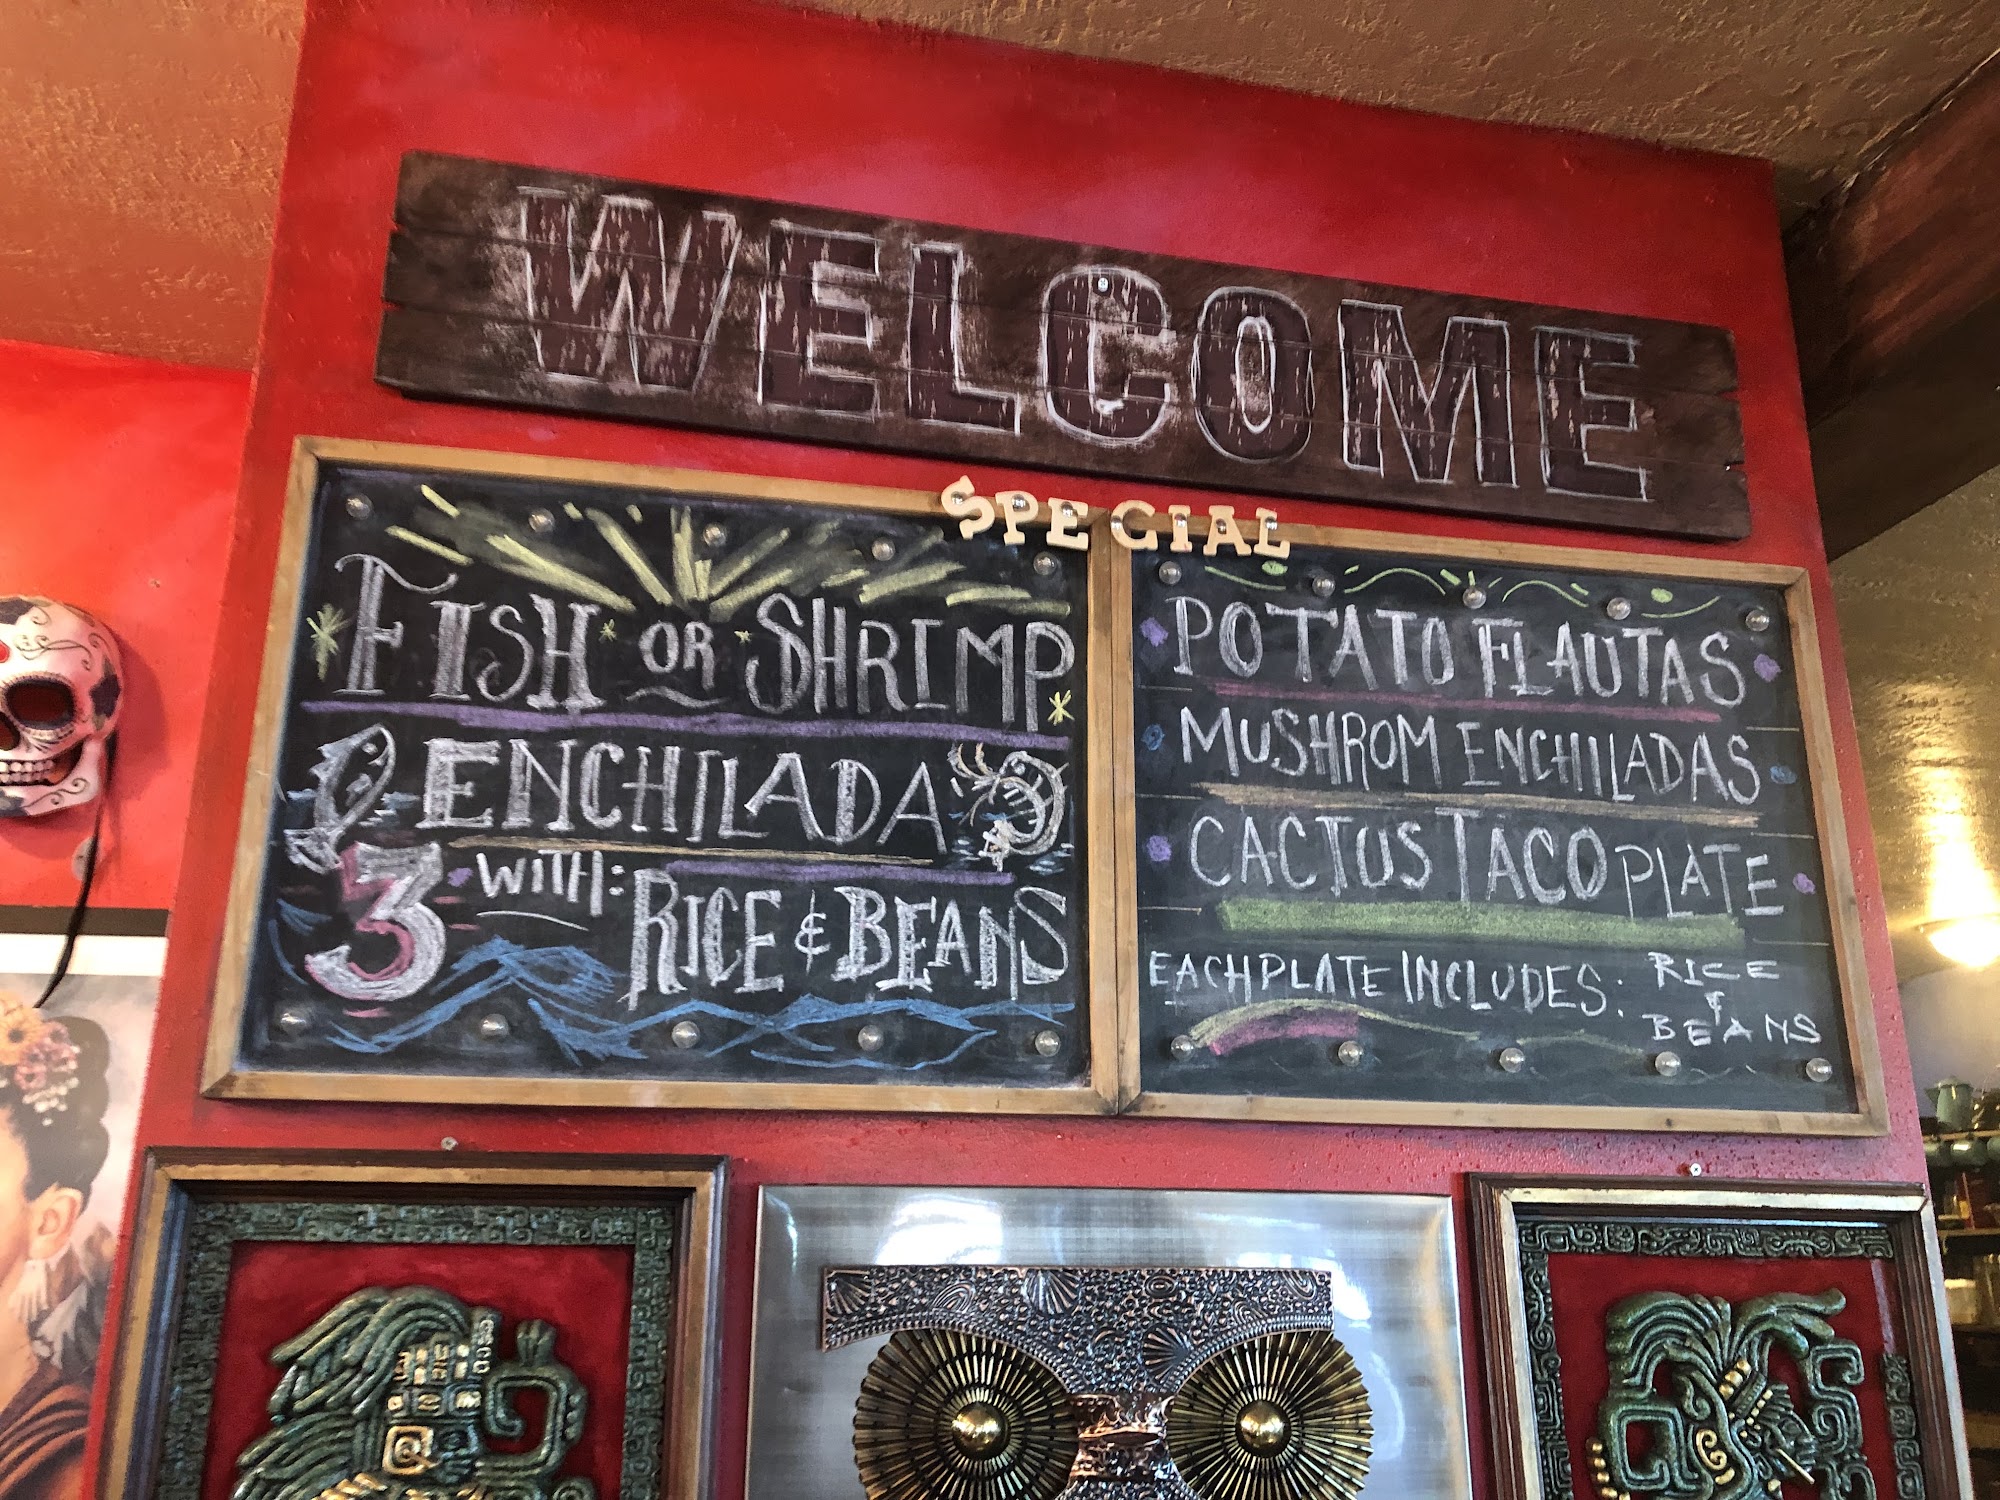 WELCOME
SPECIAL
FISH OR SHRIMP
ENCHILADA
3 WITH: RICE & BEANS
POTATO FLAUTAS
MUSHROM ENCHILADAS
CACTUS TACO PLATE
EACH PLATE INCLUDES: RICE
&
BEANS